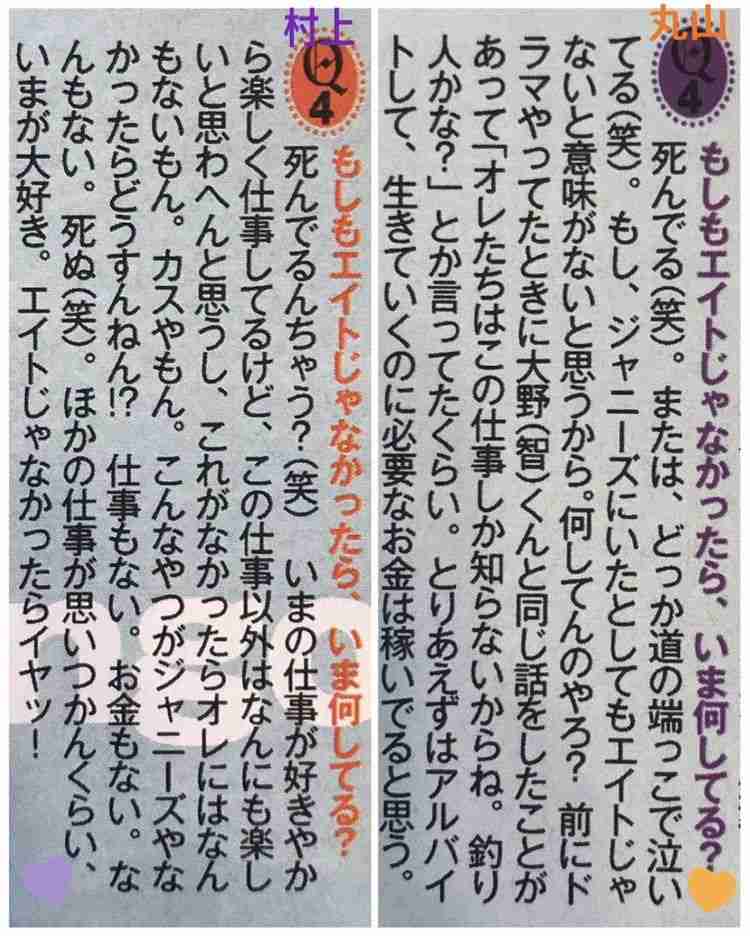 丸山
Q4
もしもエイトじゃなかったら、いま何してる?
死んでる(笑)。または、どっか道の端っこで泣い
てる(笑)。もし、ジャニーズにいたとしてもエイトじゃ
ないと意味がないと思うから。何してんのやろ? 前にド
ラマやってたときに大野(智)くんと同じ話をしたことが
あって「オレたちはこの仕事しか知らないからね。釣り
人かな?」とか言ってたくらい。とりあえずはアルバイ
トして、生きていくのに必要なお金は稼いでると思う。
村上
Q4
もしもエイトじゃなかったら、いま何してる?
死んでるんちゃう?(笑) いまの仕事が好きやか
ら楽しく仕事してるけど、この仕事以外はなんにも楽し
いと思わへんと思うし、これがなかったらオレにはなん
もないもん。カスやもん。こんなやつがジャニーズやな
かったらどうすんねん!? 仕事もない。お金もない。な
んもない。死ぬ(笑)。ほかの仕事が思いつかんくらい、
いまが大好き。エイトじゃなかったらイヤッ!
ngo